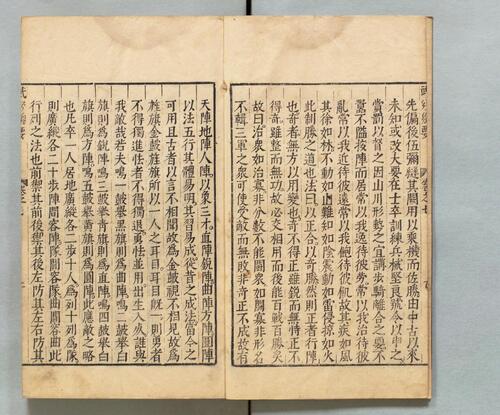 先偏後伍彌縫其闕用以乘機而佐勝田中古以來
未知或改大要在士卒訓練兵械堅良號令以申之
賞罰以督之因山川形勢之宜講步騎離合之要不
嚚不隘按陣而居常以我逸待彼勞常以我治待彼
亂常以我近待彼遠常以我飽待彼飢故其疾如風
其徐如林不動如山難知如陰震動如雷侵掠如火
此制勝之道也法曰以正合以奇勝然則正者行陣
也奇者無方以用變也奇不得正雖銳而無恃正不
得奇雖整而無功故必交相用而後能百戰百勝矣
故曰治眾如治寡非分數不能鬬眾如鬬寡非形名
不輯三軍之眾可使受敵而無敗非奇正不成故有
天陣地陣人陣以象三才直陣銳陣曲陣方陣圓陣
以法五行其體易明其習易成從昔之成法當今之
可用且古者以言不相聞故爲金鼓視不相見故爲
旌旗金鼓旌旗所以一人之耳目耳目既一則勇者
不得獨進怯者不得獨退勇怯並用出生入死誰與
我敵哉若夫鳴一鼓舉黑旗則爲曲陣鳴二鼓舉赤
旗則爲銳陣鳴三鼓舉青旗則爲直陣鳴四鼓舉白
旗則爲方陣鳴五鼓舉黃旗則爲圓陣此應敵之略
也凡卒一人居地廣縱各二步十人爲列十列爲隊
則廣縱各二十步陣間容陣隊間容隊曲間容曲此
行列之法也前禦其前後禦其後左防其左右防其